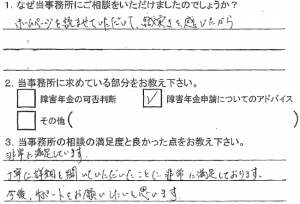 1. なぜ当事務所にご相談をいただけましたのでしょうか?
ホームページを読ませていただいて、誠実さを感じたから
2. 当事務所に求めている部分をお教え下さい。
障害年金の可否判断 ✓ 障害年金申請についてのアドバイス
その他( )
3. 当事務所の相談の満足度と良かった点をお教え下さい。
非常に満足しています。
丁寧に詳細を聞いていただいたことに非常に満足しております。
今後、サポートをお願いしたいと思います